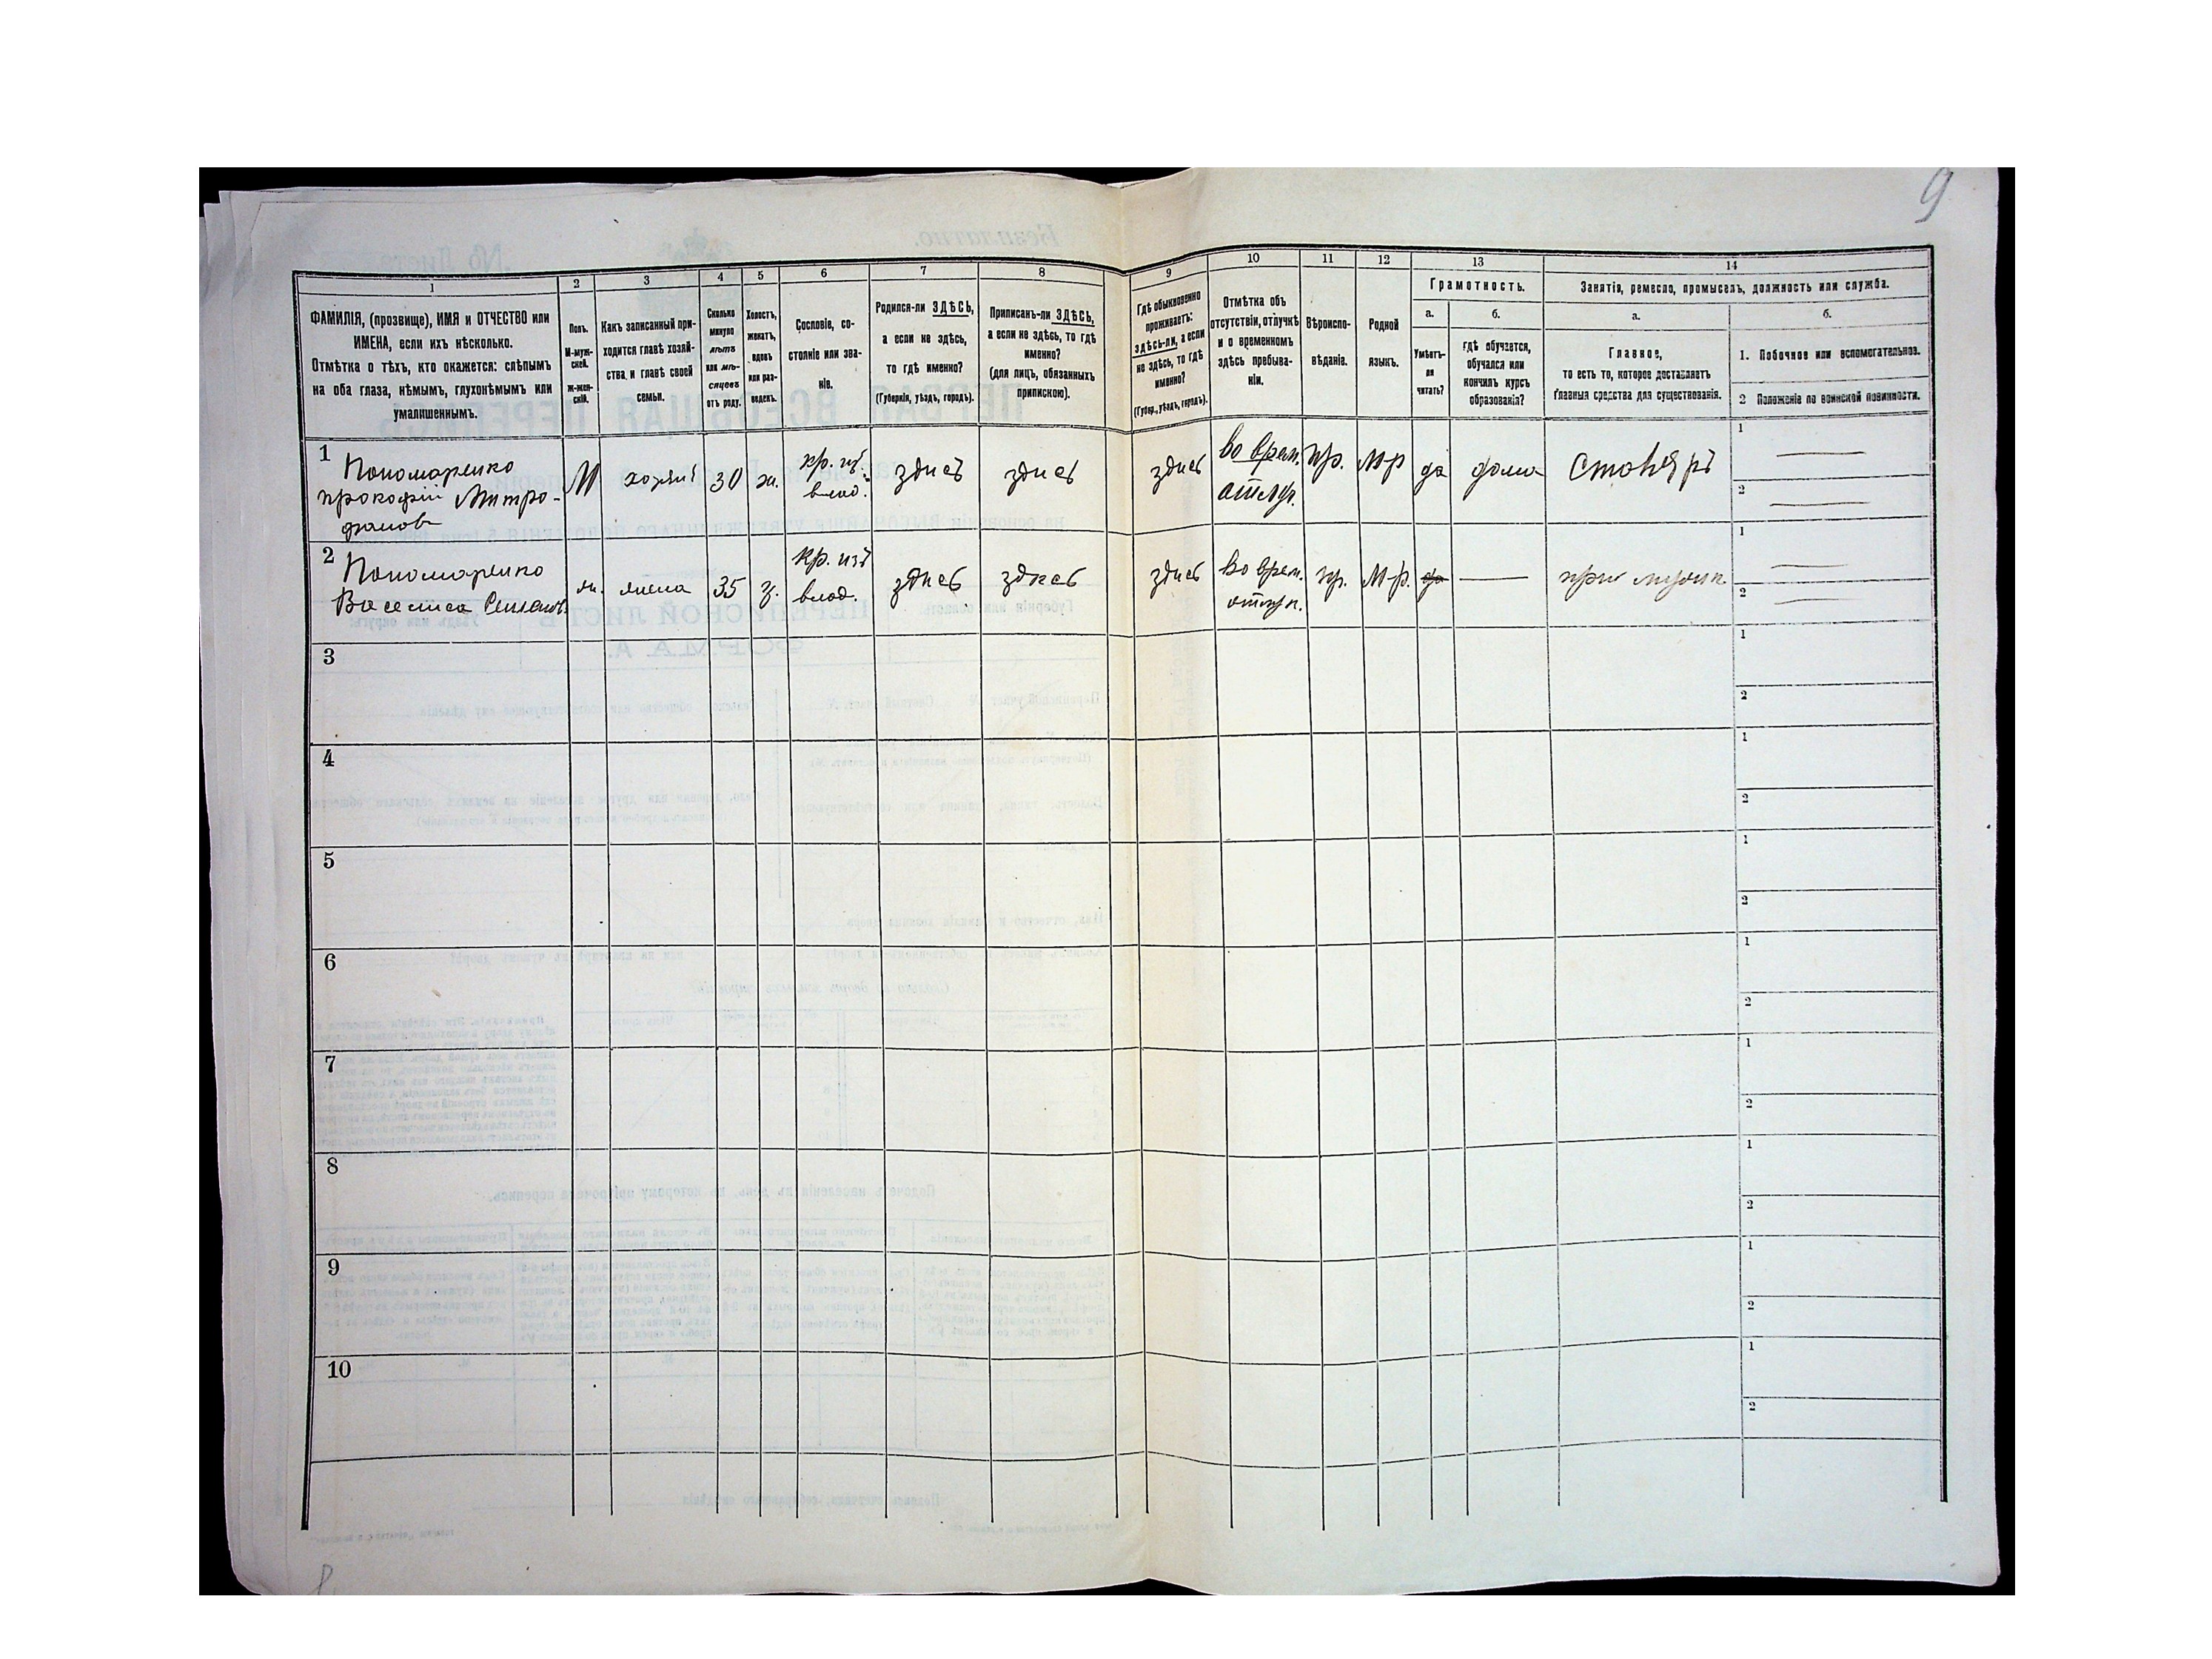 9
1
2
3
4
5
6
7
8
9
10
11
12
13
14
ФАМИЛІЯ, (прозвище), ИМЯ и ОТЧЕСТВО или
ИМЕНА, если ихъ нѣсколько.
Отмѣтка о тѣхъ, кто окажется: слѣпымъ
на оба глаза, нѣмымъ, глухонѣмымъ или
умалишеннымъ.
Полъ.
М-муж-
ской.
ж-жен-
скій.
Какъ записанный при-
ходится главѣ хозяй-
ства и главѣ своей
семьи.
Сколько
минуло
лѣтъ
или мѣ-
сяцевъ
отъ роду.
Холостъ,
женатъ,
вдовъ
или раз-
веденъ.
Сословіе, со-
стояніе или зва-
ніе.
Родился-ли ЗДѢСЬ,
а если не здѣсь,
то гдѣ именно?
(Губернія, уѣздъ, городъ).
Приписанъ-ли ЗДѢСЬ,
а если не здѣсь, то гдѣ
именно?
(для лицъ, обязанныхъ
припискою).
Гдѣ обыкновенно
проживаетъ:
здѣсь-ли, а если
не здѣсь, то гдѣ
именно?
(Губер., уѣздъ, городъ).
Отмѣтка объ
отсутствіи, отлучкѣ
и о временномъ
здѣсь пребыва-
ніи.
Вѣроиспо-
вѣданіе.
Родной
языкъ.
Грамотность.
а.
Умѣетъ-
ли
читать?
б.
гдѣ обучается,
обучался или
кончилъ курсъ
образованія?
Занятія, ремесло, промыселъ, должность или служба.
а.
Главное,
то есть то, которое доставляетъ
главныя средства для существованія.
б.
1. Побочное или вспомогательное.
2 Положеніе по воинской повинности.
1 Пономаренко
прокофий Митро-
фанов
М
хозяин
30
ж.
кр. из
влад.
здись
здись
здись
во врем.
отлуч.
пр.
М-р
да
дома
столяръ
1
2
2 Пономаренко
Василиса Семенов.
ж.
жена
35
з.
кр. изъ
влад.
здись
здись
здись
во врем.
отлуч.
пр.
М-р.
да
при мужи
1
2
3
1
2
4
1
2
5
1
2
6
1
2
7
1
2
8
1
2
9
1
2
10
1
2